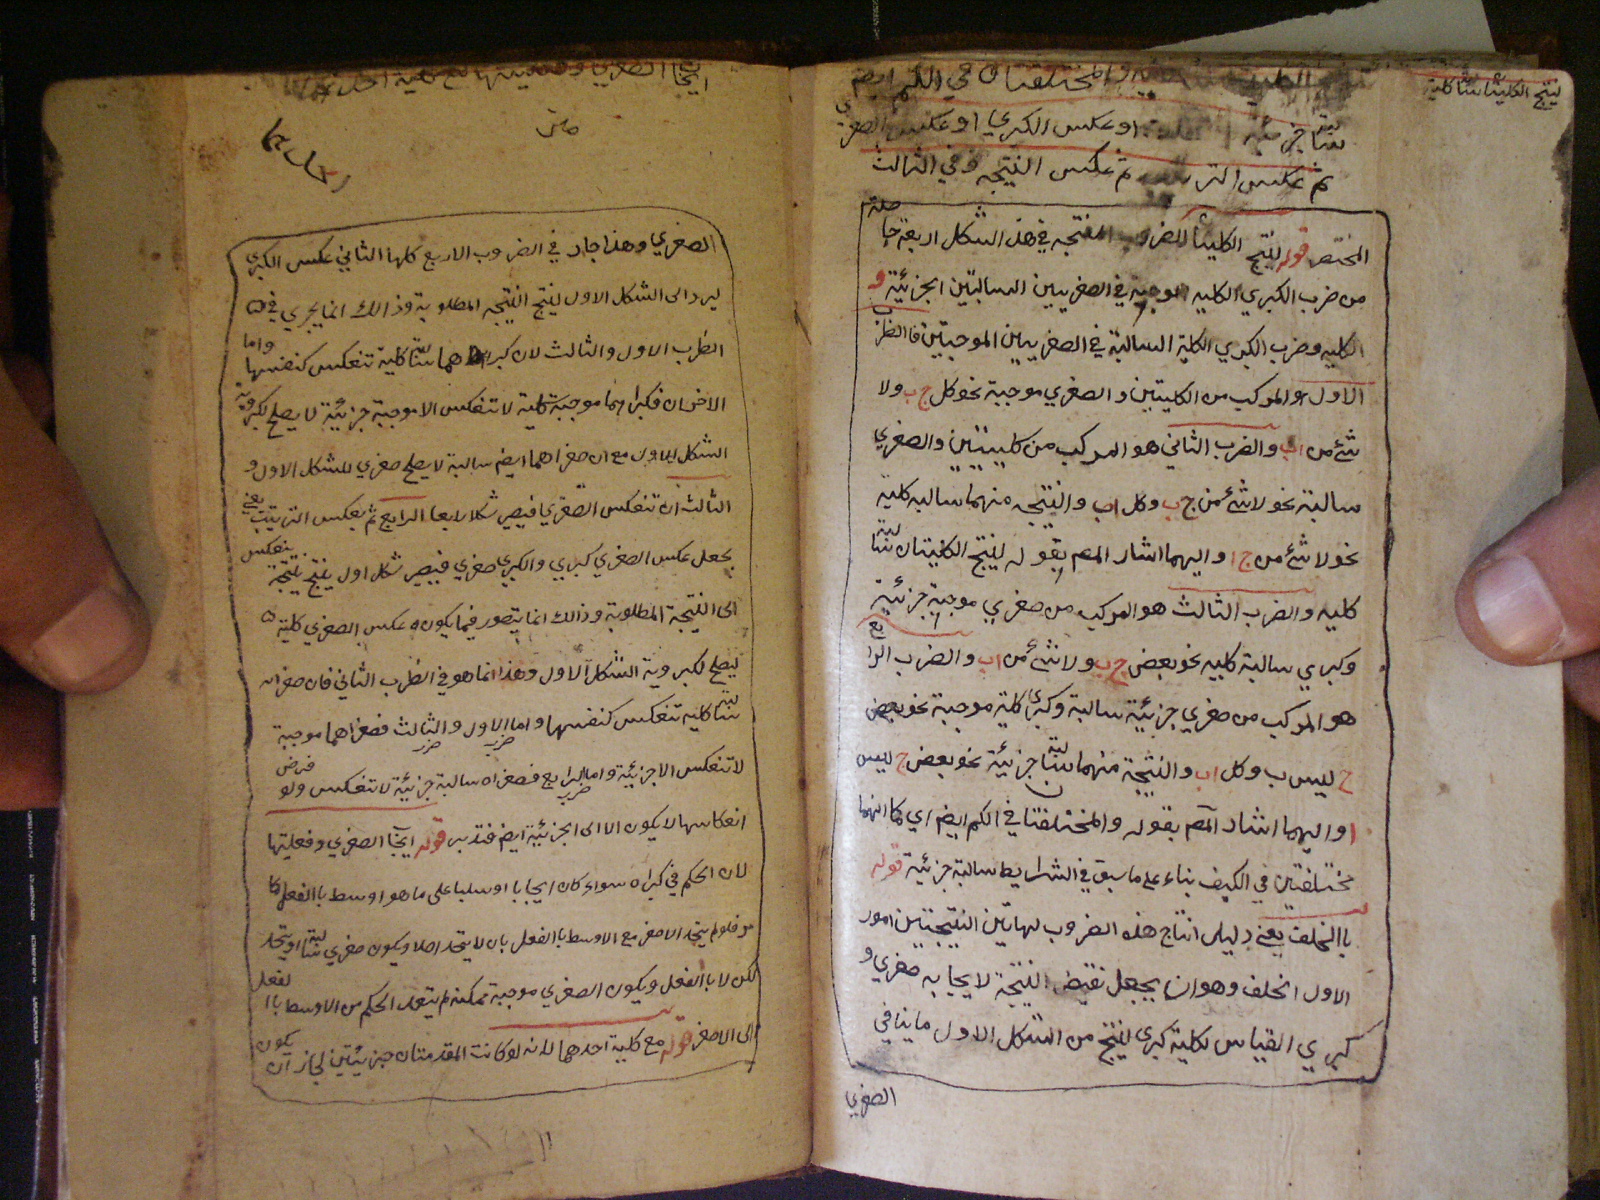 لينتج الكليتان سالبة كلية
والمختلفتان في الكم ايضا
سالبة جزئية او عكس الكبري او عكس الصغري
ثم عكس الترتيب ثم عكس النتيجه وفي الثالث
المختصر قوله لينتج الكليتان الضروب المنتجه في هذا الشكل اربعة حاصلة
من ضرب الكبري الكليه الموجبة في الصغريين السالبتين الجزئية و
الكليه وضرب الكبري الكلية السالبة في الصغريين الموجبتين فالضرب
الاول هو المركب من الكليتين والصغري موجبة نحو كل ج ب ولا
شئ من اب والضرب الثاني هو المركب من كليتين والصغري
سالبة نحو لا شئ من ج ب وكل اب والنتيجه منهما سالبه كلية
نحو لا شئ من ج ا واليهما اشار المصم بقوله لينتج الكليتان سالبة
كليه والضرب الثالث هو المركب من صغري موجبة جزئية
وكبري سالبة كليه نحو بعض ج ب ولا شئ من اب والضرب الرابع
هو المركب من صغري جزئية سالبة وكبري كلية موجبة نحو بعض
ج ليس ب وكل اب والنتيجة منهما سالبة جزئية نحو بعض ج ليس
ا واليهما اشار المصم بقوله والمختلفتا في الكم ايضم اي كما انهما
مختلفتين في الكيف بناء على ما سبق في الشرايط سالبة جزئية قوله
باالخلف يعني دليل انتاج هذه الضروب لهاتين النتيجتين امور
الاول الخلف وهو ان يجعل نقيض النتيجة لايجابه صغري و
كبري القياس لكليته كبري لينتج من الشكل الاول ما ينافي
الصغري
ايجاب الصغري وفعليتها مع كلية احد
متن
الصغري وهذا جار في الضروب الاربع كلها الثاني عكس الكبري
ليرد الى الشكل الاول لينتج النتيجه المطلوبة وذالك انما يجري في
الضرب الاول والثالث لان كبراهما سالبة كلية تنعكس كنفسها واما
الاخران فكبراهما موجبة كلية لا تنعكس الا موجبة جزئية لا يصلح لكبروية
الشكل الاول مع ان صغراهما ايضم سالبة لا يصلح صغري للشكل الاول و
الثالث ان تنعكس الصغري فيصير شكلا رابعا ثم يعكس الترتيب يعني
يجعل عكس الصغري كبري والكبري صغري فيصير شكل اول ينتج نتيجة ينعكس
الى النتيجة المطلوبة وذالك انما يتصور فيما يكون عكس الصغري كلية
ليصلح لكبروية الشكل الاول وهذا انما هو في الضرب الثاني فان صغراه
سالبة كليه تنعكس كنفسها واما الاول والثالث فصغراهما موجبة
لا تنعكس الا جزئية واما الرابع فصغراه سالبة جزئية لا تنعكس ولو فرض
انعكاسها لا يكون الا الى الجزئية ايضم فتدبر قوله ايجاب الصغري وفعليتها
لان الحكم في كبراه سواء كان ايجابا او سلبا على ما هو اوسط باالفعل كا
مر فلو لم يتحد الاصغر مع الاوسط باالفعل بان لا يتحد اصلا ويكون صغري سالبة او يتحد
لكن لا باالفعل ويكون الصغري موجبة ممكنة لم يتعد الحكم من الاوسط باا لفعل
الى الاصغر قوله مع كلية احدهما لانه لو كانت المقدمتان جزئيتين لجاز ان يكون